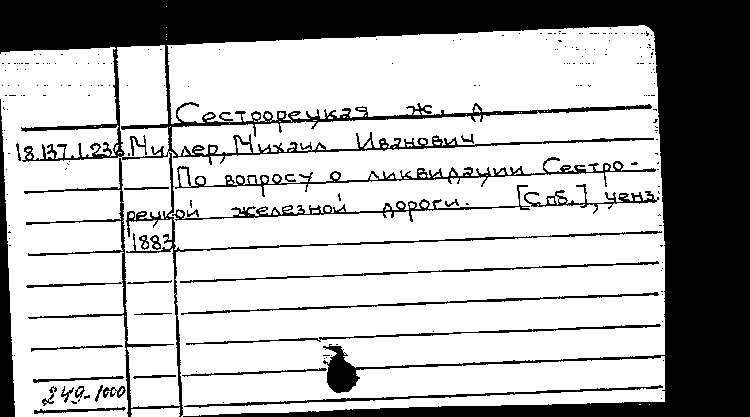 Сестрорецкая ж. д
18.137.1.236 Миллер, Михаил Иванович
По вопросу о ликвидации Сестро-
рецкой железной дороги. [Спб.], ценз.
1883.
249-1000